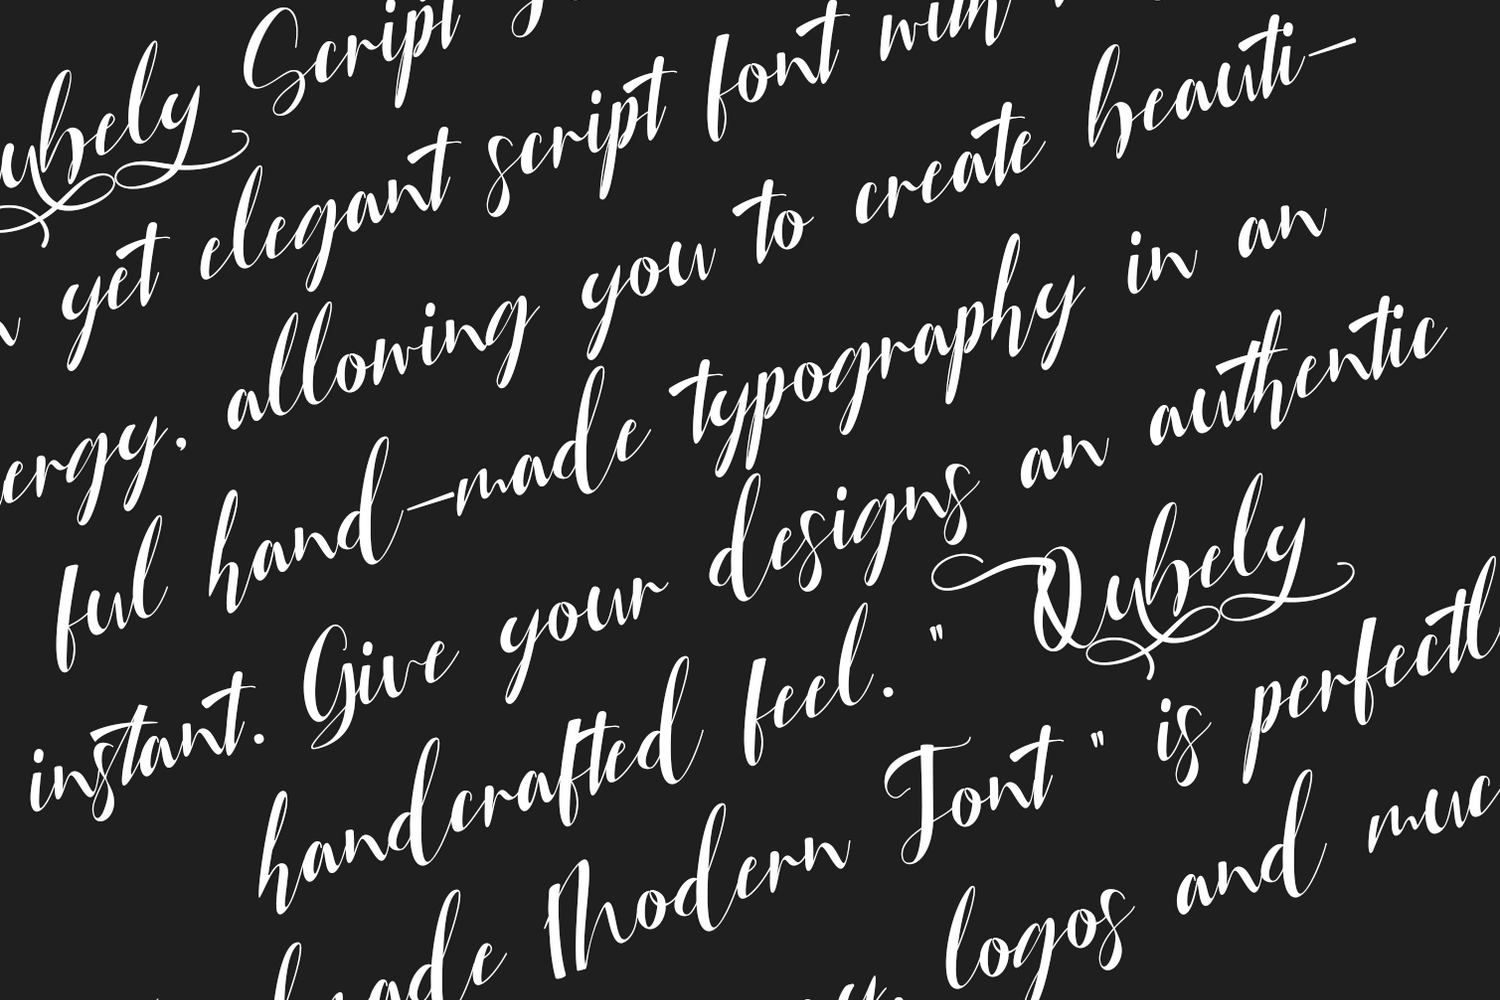 Qubely Script
yet elegant script font with
energy, allowing you to create beauti-
ful hand-made typography in an
instant. Give your designs an authentic
handcrafted feel. " Qubely
made Modern Font " is perfectl
logos and muc